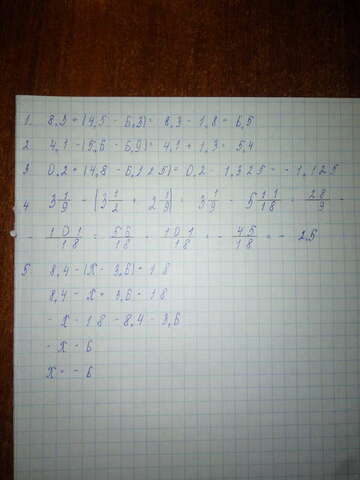 1. 8,3 + (4,5 - 6,3) = 8,3 - 1,8 = 6,5
2 4,1 - (5,6 - 6,9) = 4,1 + 1,3 = 5,4
3 0,2 + (4,8 - 6,125) = 0,2 - 1,325 = - 1,125
4 3 1/9 - (3 1/2 + 2 1/9) = 3 1/9 - 5 11/18 = 28/9 -
- 101/18 = 56/18 - 101/18 = - 45/18 = - 2,5
5. 8,4 - (x - 3,6) = 18
8,4 - x + 3,6 = 18
- x = 18 - 8,4 - 3,6
- x = 6
x = - 6